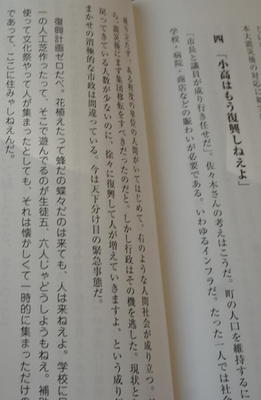 本大震災後の対応に
四　「小高はもう復興しねえよ」
「市長と議員が成り行き任せだ」。佐々木さんの考えはこうだ。町の人口を維持するに
学校・病院・商店などの賑わいが必要である。いわゆるインフラだ。たった一人では社会
ある程度の規模の人間がいてはじめて、右のような人間社会が成り立つ。
震災後にまず集団移転をすべきだったのだと。しかし行政はその機を逃した。現状と
戻ってきている人数が少ないのに、徐々に復興して人が増えていきますよ、という成り
まかせの消極的な市政は間違っている。今は天下分け目の緊急事態だ。
復興計画ゼロだべ。花植えたって蜂だの蝶々だのは来ても、人は来ねえよ。学校に
一の人工芝作ったって、そこで遊んでるのが生徒五、六人じゃどうしようもねえ。補助
使って文化祭やって人が集まったとしても、それは懐かしくて一時的に集まっただけの
であって、ここに住みゃしねえんだ。